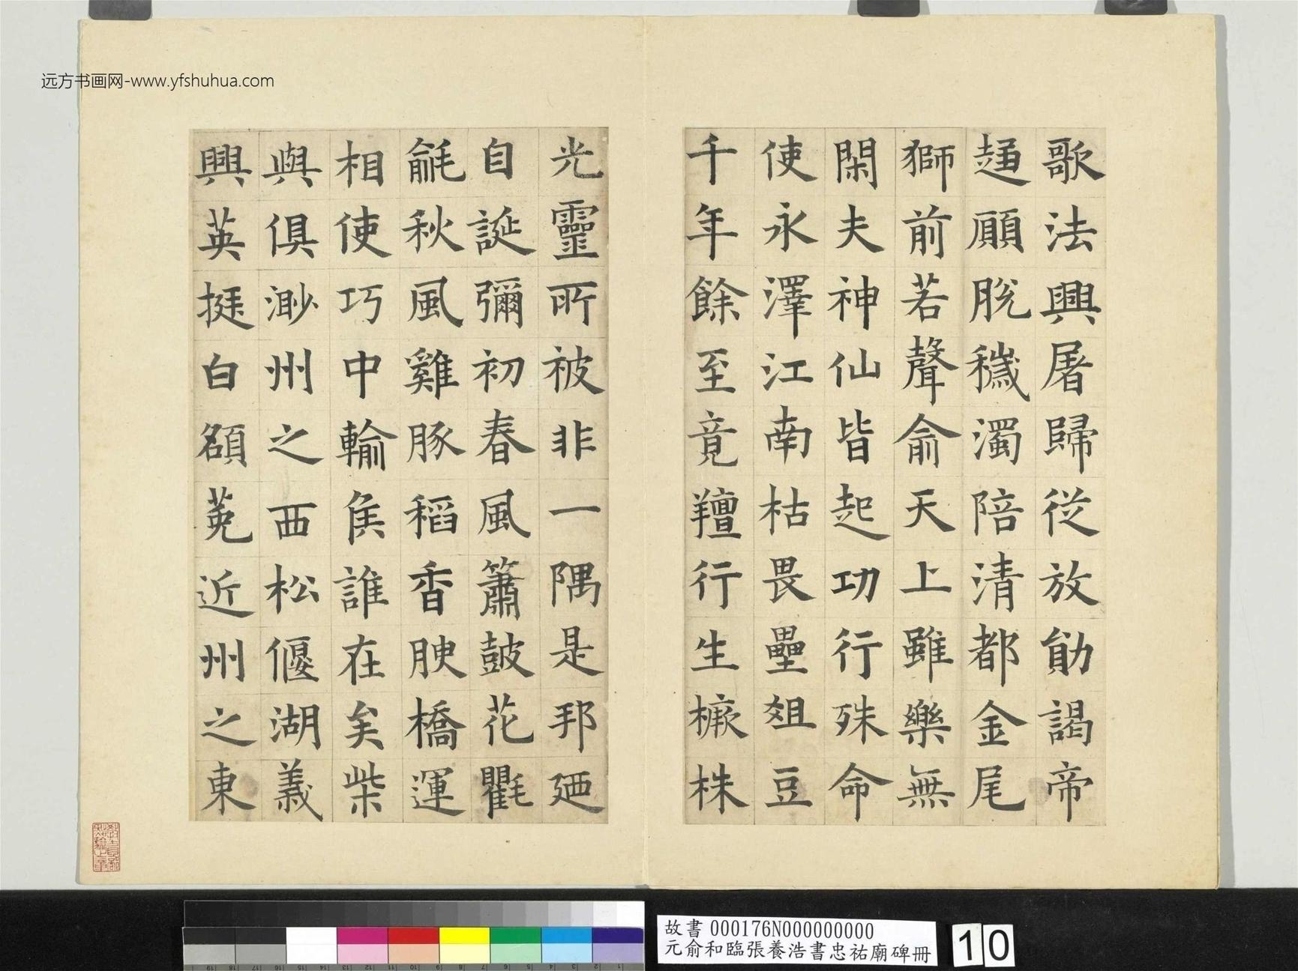 远方书画网-www.yfshuhua.com
歌法興屠歸從放勛謁帝
趙願脫穢濁陪清都金尾
獅前若聲俞天上雖樂無
閑夫神仙皆起功行殊命
使永澤江南枯畏壘俎豆
千年餘至竟羶行生橛株
光靈所被非一隅是邦廼
自誕彌初春風簫鼓花氍
毹秋風雞豚稻香腴橋運
相使巧中輸矦誰在矣柴
與俱渺州之西松偃湖義
興英挺白額薨近州之東
故書 000176N000000000
元俞和臨張養浩書忠祐廟碑冊
10